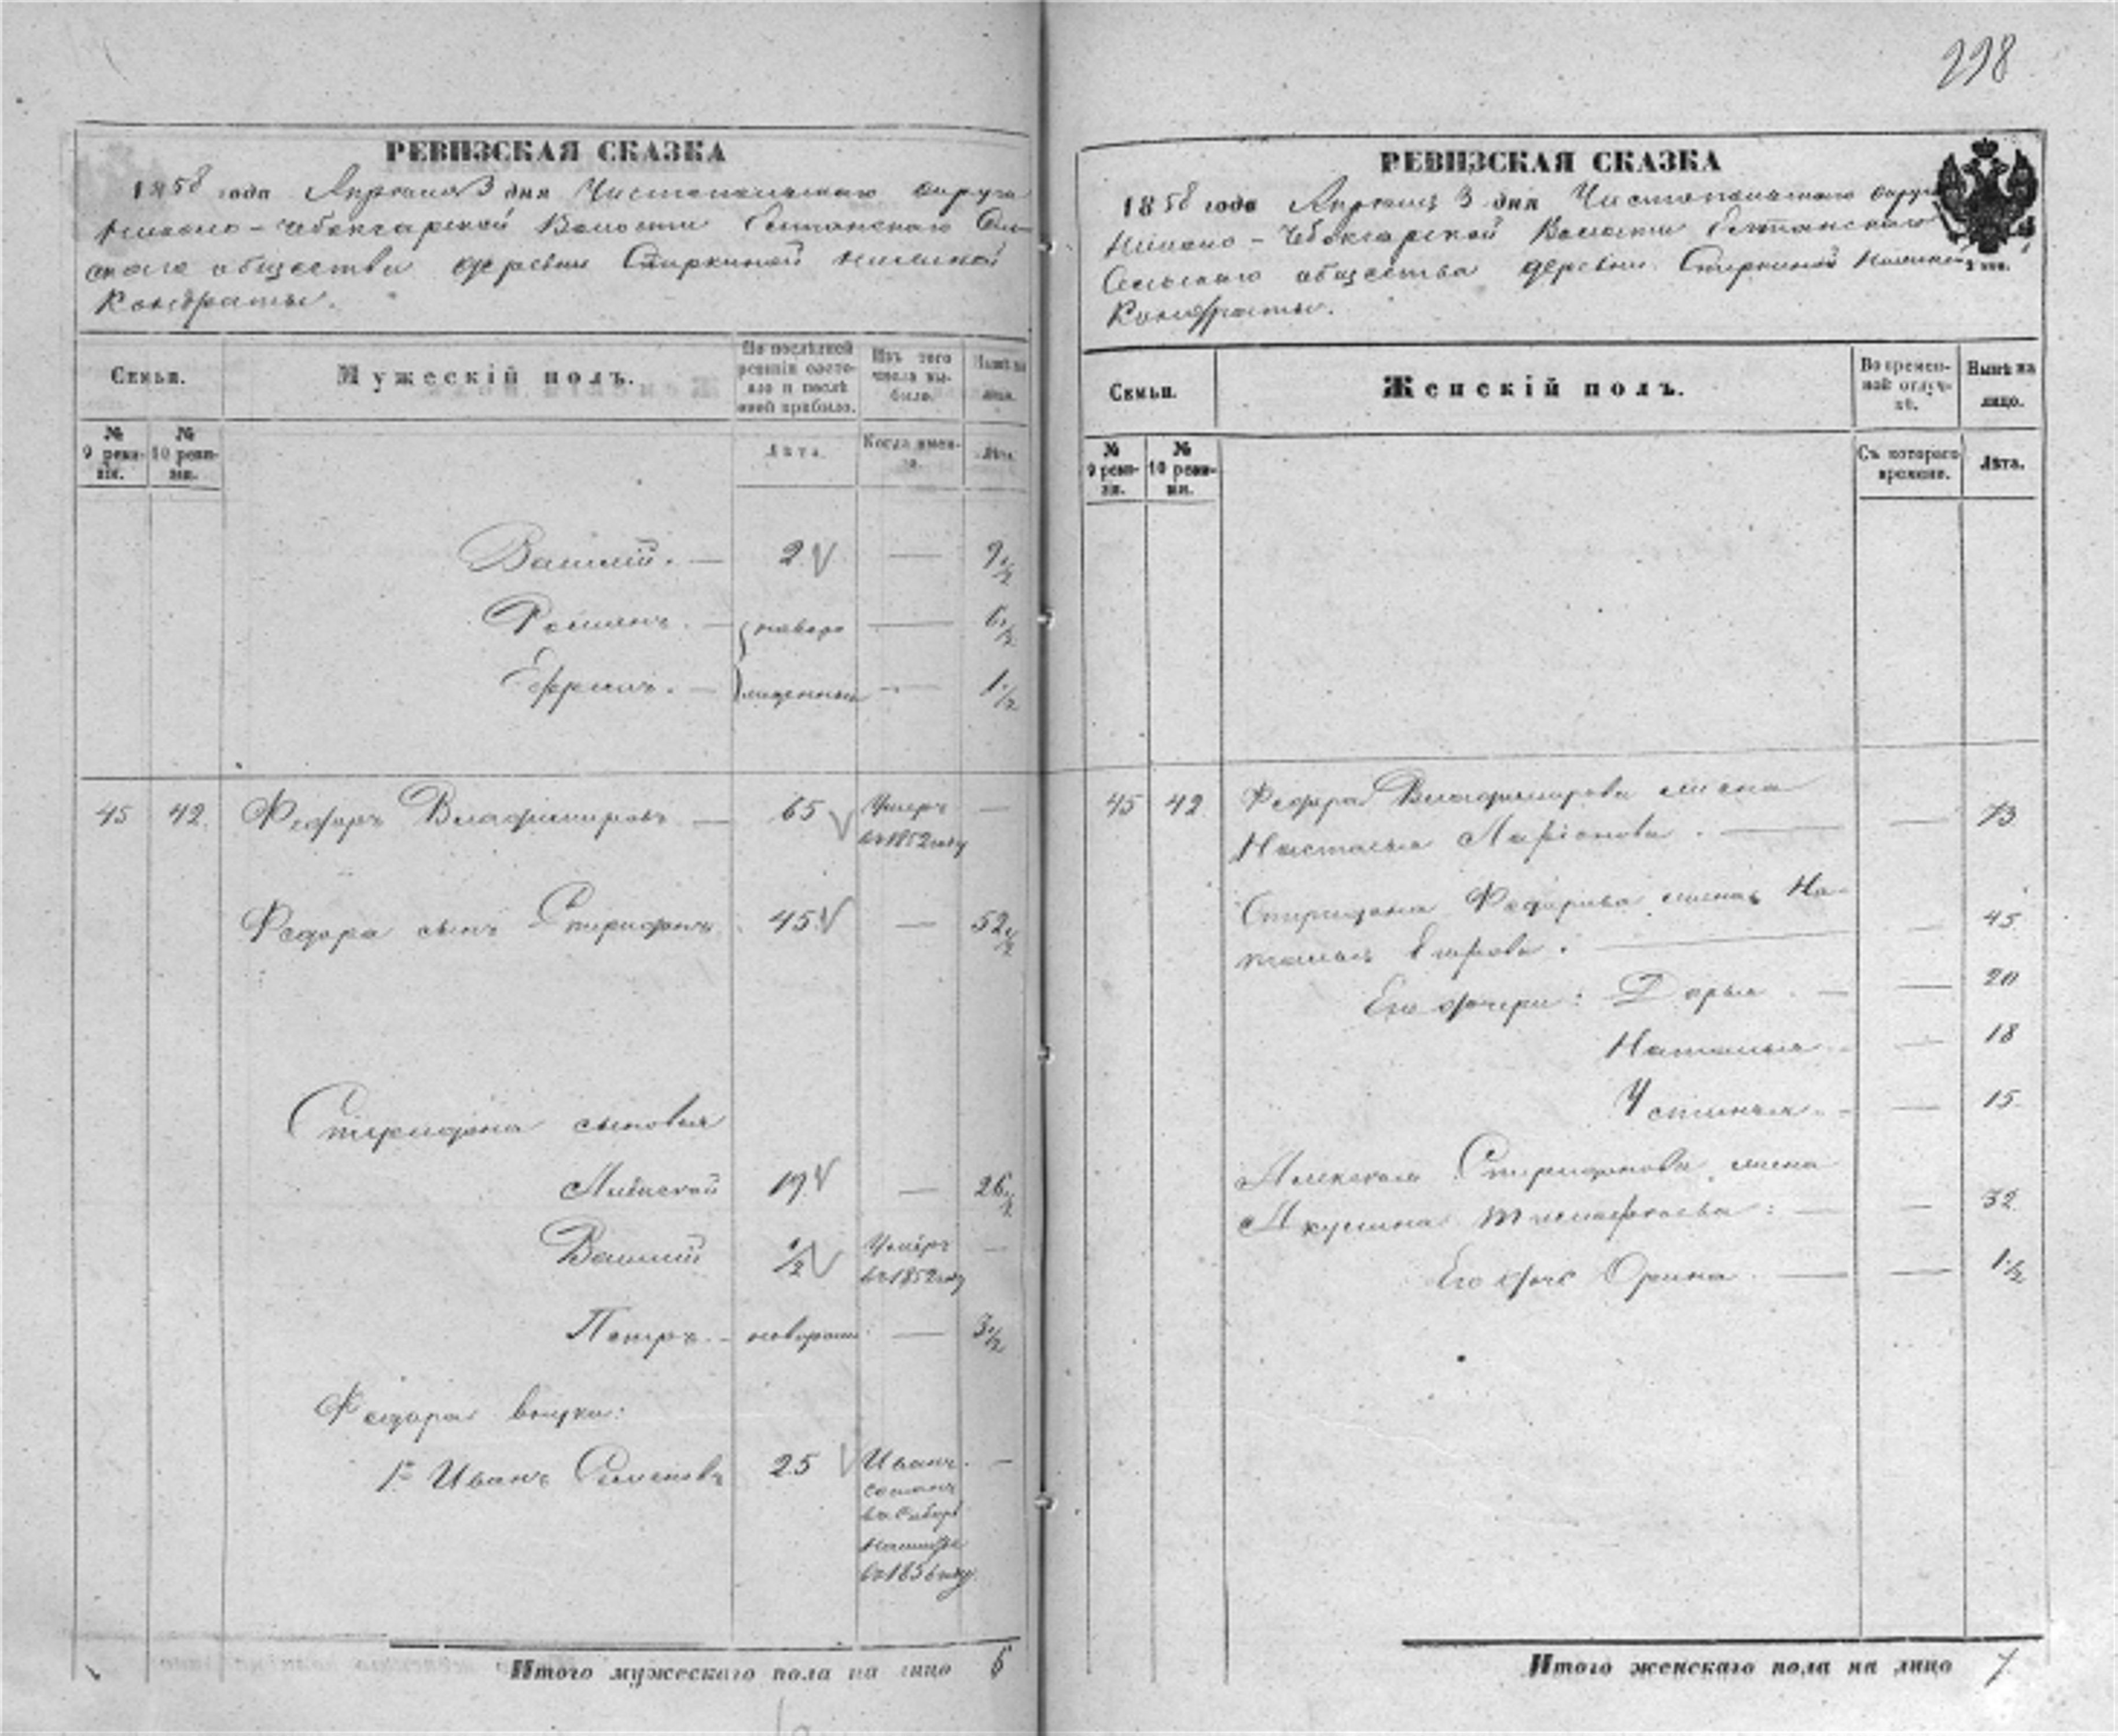 298
РЕВИЗСКАЯ СКАЗКА
1858 года Апреля 3 дня Чистопольскаго округа
– Чебоксарской Волости Сель-
скаго общества деревни Спиркиной
Кондраты.
Семьи.
Мужескій полъ.
По послѣдней
ревизіи состо-
яло и послѣ
оной прибыло.
Изъ того
числа вы-
было.
Нынѣ на
лицо.
№
9 реви-
зіи.
№
10 реви-
зіи.
Лѣта.
Когда имен-
но.
Лѣта.
Василій. — 2 — 9 1/2
Романъ. — новоро — 6 1/2
Ефремъ. — жденный — 1 1/2
45 42. Федоръ Владимировъ — 65 Умеръ —
въ 1852 году
Федора сынъ Спиридонъ 45 — 52 1/2
Спиридона сыновья
Алексей 19 — 26 1/2
Василий 1/2 Умеръ —
въ 1852 году
Петръ. — новорожд. — 3 1/2
Федора внуки:
1й Иванъ Семеновъ 25 Иванъ —
сосланъ
въ Сибирь
въ 1856 году.
Итого мужескаго пола на лицо 6
РЕВИЗСКАЯ СКАЗКА
1858 года Апреля 3 дня Чистопольскаго округа
– Чебоксарской Волости
Сельскаго общества деревни Спиркиной
Кондраты.
Семьи.
Женскій полъ.
Во времен-
ной отлуч-
кѣ.
Нынѣ на
лицо.
№
9 реви-
зіи.
№
10 реви-
зіи.
Съ котораго
времени.
Лѣта.
45 42 Федора Владимирова жена
Настасья Ларіонова. — — 73
Спиридона Федорова жена На-
талья Егорова. — — 45
Его дочери: Дарья. — — 20
Наталья — 18
Устинья. — — 15
Алексея Спиридонова жена
Акулина Тимофеева: — — 32
Его дочь Орина — — 1 1/2
Итого женскаго пола на лицо 7